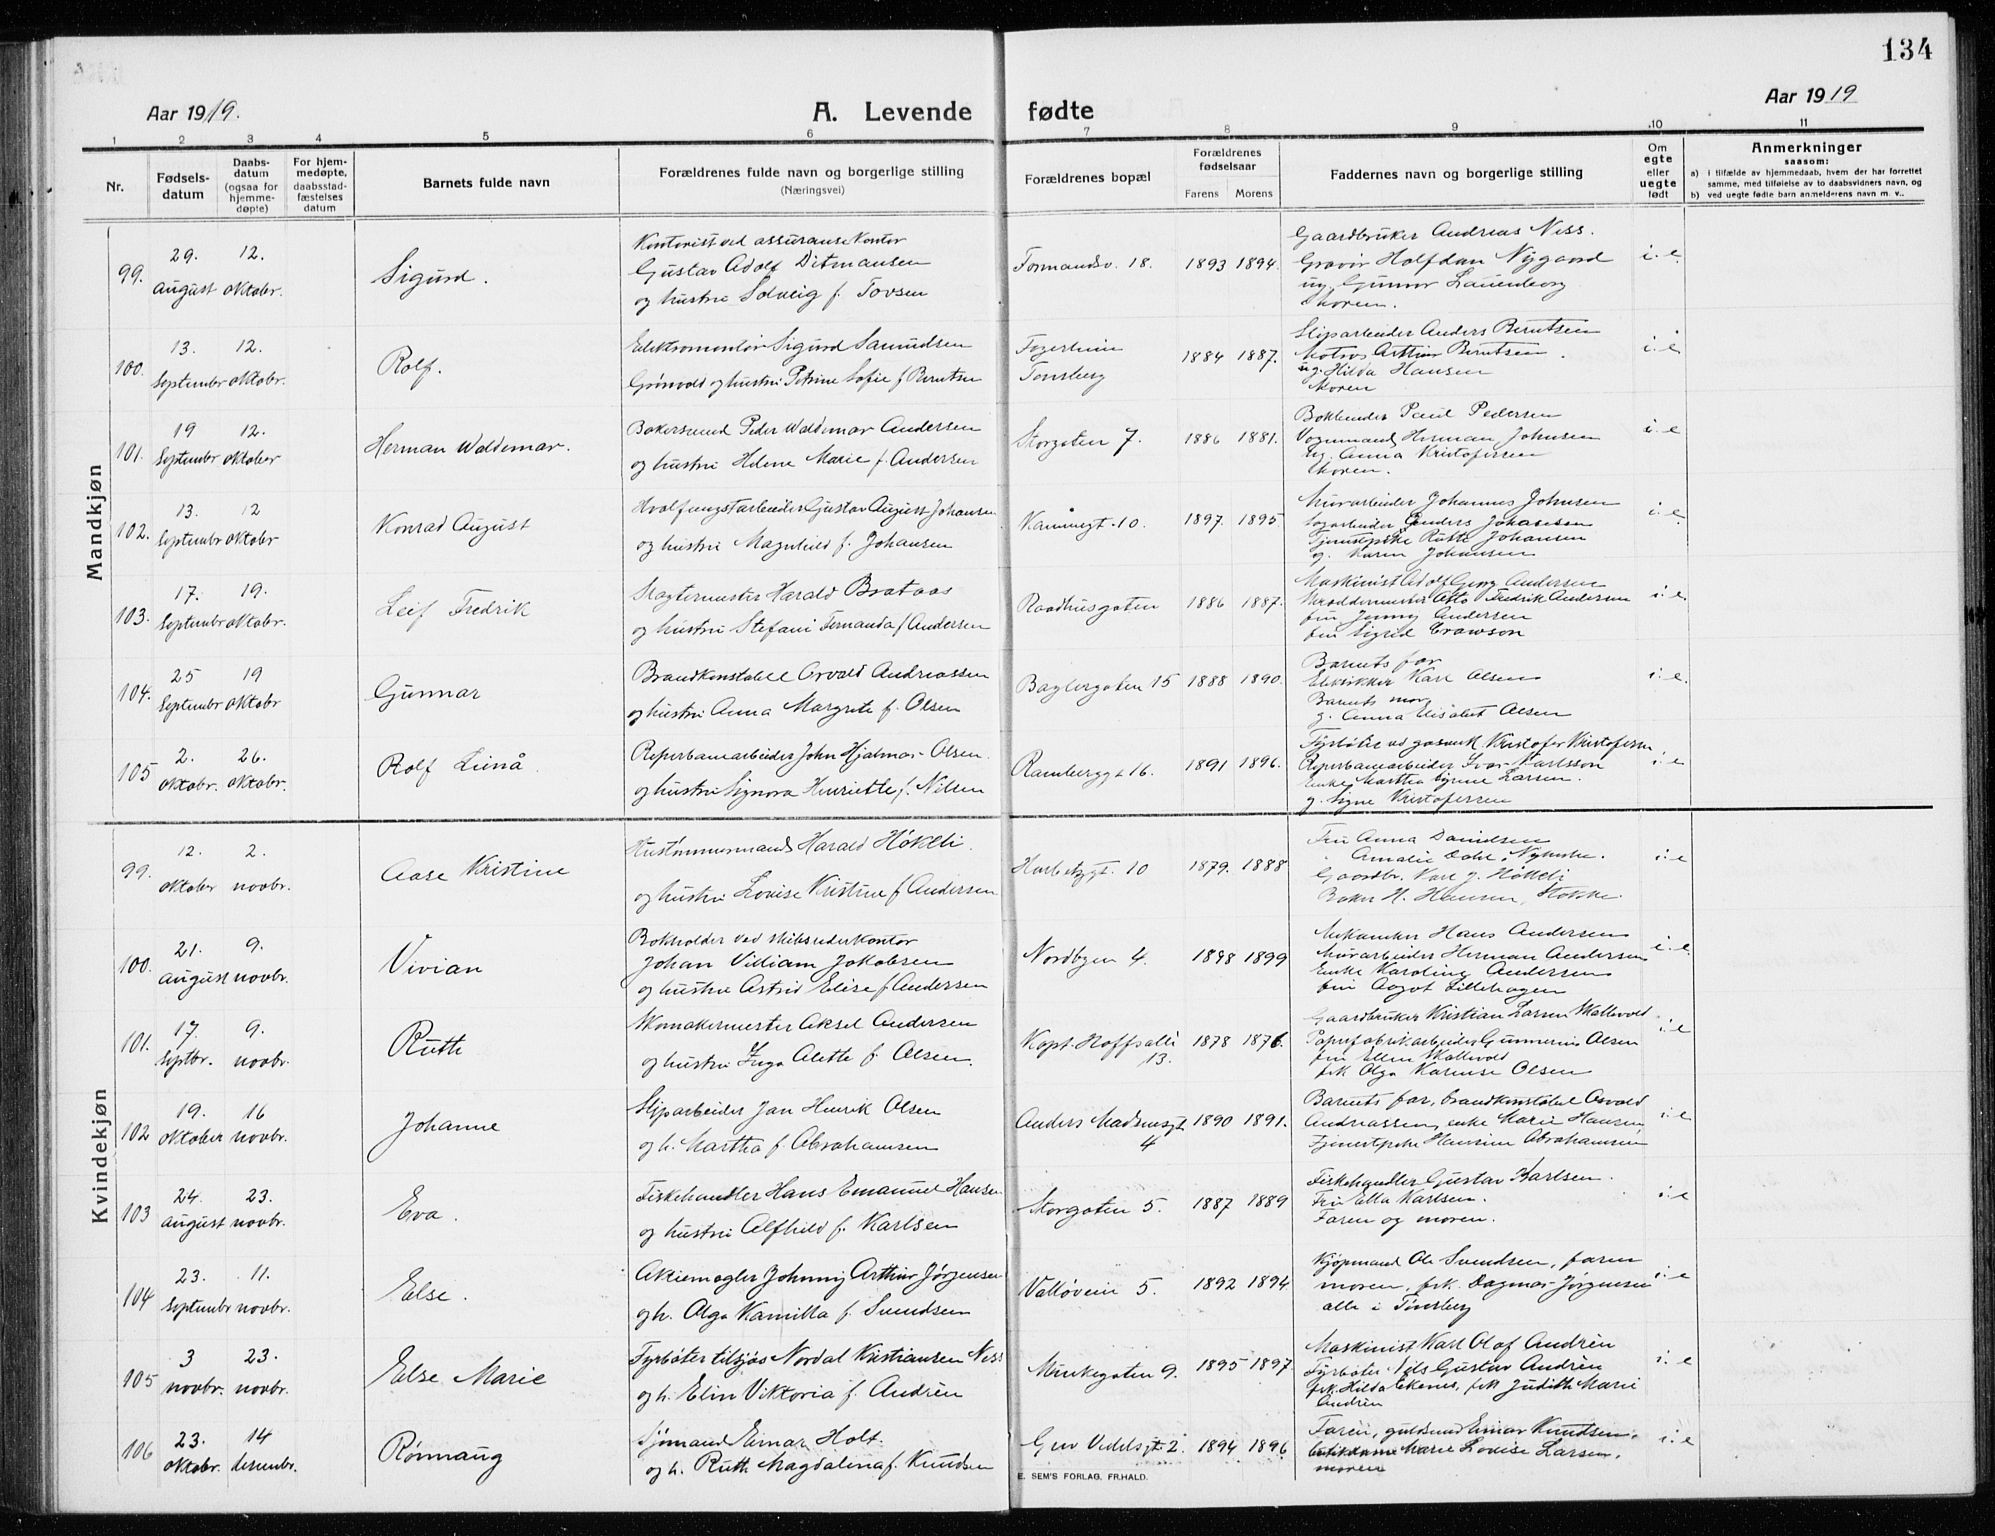 134
Aar 1919.
A. Levende fødte
Aar 1919
1 2 3 4 5 6 7 8 9 10 11
Nr.
Fødsels-
datum
Daabs-
datum
(ogsaa for
hjemme-
døpte)
For hjem-
medøpte,
daabsstad-
fæstelses
datum
Barnets fulde navn
Forældrenes fulde navn og borgerlige stilling
(Næringsvei)
Forældrenes bopæl
Forældrenes
fødselsaar
Farens Morens
Faddernes navn og borgerlige stilling
Om
egte
eller
uegte
født
Anmerkninger
saasom:
a) i tilfælde av hjemmedaab, hvem der har forrettet
samme, med tilføielse av to daabsvidners navn, og
b) ved uegte fødte barn anmelderens navn m. v..
Mandkjøn
99.
29.
august
12.
oktober.
Sigurd.
Kontorist ved assuransekontor
Gustav Adolf Ditmansen
og hustru Solveig f. Tovsen
Formandsv. 18.
1893 1894.
Gaardbruker Andreas Ness.
Gravör Halfdan Nygaard
ug. Gunvor Lauenborg
moren.
i. e.
100.
13.
Septembr
12.
oktobr.
Rolf.
Elektromontör Sigurd Samuelsen
Grönvold og hustru Petrine Sofie f Berntsen
Tönsberg
1884 1887.
Sliparbeider Anders Berntsen
Matros Arthur Berntsen.
ug. Hilda Hansen
Moren
i. e.
101.
19
Septembr
12.
oktober
Herman Waldemar.
Bakersvend Peder Waldemar Andersen
og hustru Helene Marie f. Andersen
Storgaten 7.
1886 1881.
Bokbinder Paul Pedersen
Vognmand Herman Johnsen
ug. Anna Kristofersen
Moren.
i. e
102.
13.
Septembr
12
oktobr
Konrad August
Hvalfangstarbeider Gustav August Johansen
og hustru Magnhild f. Johansen
10.
1897. 1895
Murarbeider Johannes Johnsen
Sagarbeider Anders Johansen
Tjenestepike Ruth Johansen
g. Karen Johansen
i. e.
103.
17.
Septembr
19.
oktobr.
Leif Fredrik
Slagtermester Harald Brataas
og hustru Stefani Fernanda f Andersen
Raadhusgaten
1886 1887.
Maskinist Adolf Georg Andersen
Skræddermester Otto Fredrik Andersen
fru Jenny Andersen
fru Sigrid Crawson
i. e.
104.
25
Septembr
19
oktobr
Gunnar
Brandkonstabel Osvald Andreassen
og hustru Anna Margrete f. Olsen
Baglergaten 15
1888 1890.
Barnets far
Karl Olsen
Barnets mor
g. Anna Elisabet Olsen
i. e.
105
2.
oktobr.
26.
oktobr.
Rolf Lunå.
Reperbanearbeider John Hjalmar Olsen.
og hustru Signora Henriette f. Nilsen
Ramberggt 16.
1891 1896.
Fyrböter ved gasverk Kristofer Kristofersen
Reperbanearbeider Ivar Karlsson
Enke Martha Larsen.
g. Signe Kristofersen
i. e
Kvindekjøn
99.
12.
oktober
2.
novbr.
Aase Kristine
Hustömmermand Harald Hökeli.
og hustru Lovise Kristine f Andersen
10
1879. 1888
Fru Anna Danielsen
" Amalie Dahl,
Gaardbr. Karl J. Hökeli
Baker H. Hansen, Stokke.
i. e
100.
21.
august
9.
novbr.
Vivian
Bokholder ved skibsrederkontor
Johan Villiam Jakobsen
og hustru Astrid Elise f Andersen
Nordbyen 4.
1898 1899
Mekaniker Hans Andersen
Murarbeider Herman Andersen
Enke Karoline Andersen
fru Aagot Lillehagen
i. e.
101.
17.
Septbr.
9.
novbr.
Ruth
Skomakermester Aksel Andersen
og hustru Inga Alette f. Olsen.
Kapt. Hoffsalle
13.
1878 1876.
Gaardbruker Kristian Larsen Skallevold
Papirfabrikarbeider Gunnerius Olsen
fru Ellen Skallevold
frk Olga Karense Olsen
i. e
102
19.
oktober
16
novbr.
Johanne
Sliparbeider Jan Henrik Olsen
og h. Martha f Abrahamsen
Anders Madsensgt
4
1890 1891.
Barnets far, brandkonstabel Osvald
Andreassen, enke Marie Hansen,
Tjenestpike Hansine Abrahamsen
i. e
103
24.
august
23.
novbr.
Eva.
Fiskehandler Hans Emanuel Hansen
og hustru Alfhild f. Karlsen
Storgaten 5.
1887 1889
Fiskehandler Gustav Karlsen.
Fru Ella Karlsen.
Faren og moren.
i. e
104
23.
Septembr
11.
novbr.
Else.
Aksiemægler Johnny Arthur Jörgensen
og h. Olga Kamilla f. Svendsen
Vallöveien 5.
1892 1894
Kjöpmand Ole Svendsen, faren
moren, frk. Dagmar Jörgensen
alle i Tönsberg
i. e
105
3
novbr.
23.
novbr.
Else Marie
Fyrböter tilsjös Nordal Kristiansen Ness
og h. Elin Viktoria f. Andrén
Munkegaten 9.
1895 1897.
Maskinist Karl Olaf Andrén
Fyrböter Nils Gustav Andrén
frk. Hilda Ekenes, frk Judith Marie
Andrén
i. e
106
23.
oktobr.
14
desembr.
Rönnaug
Sjömand Einar Holt.
og h. Ruth Magdalena f. Knudsen
Grev Vedelsgt 2.
1894 1896
Faren, guldsmed Einar Knudsen,
Marie Lovise Larsen,
moren
i. e
E. SEM'S FORLAG, FR.HALD.